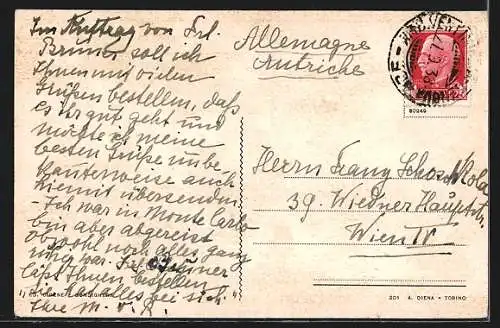 Im Auftrag von Frl.
Brunner soll ich
Ihnen mit vielen
Grüßen bestellen, daß
es ihr gut geht und
möchte ich meine
besten Grüße unbe-
kannterweise auch
hiemit übersenden.
- Ich war in Monte Carlo
bin aber abgereist
obwohl noch alles ganz
war. Frl. Brunner
läßt Ihnen bestellen
alles bei sich.
Ihre
Allemagne
Autriche
80949
Herrn Franz
39 Wiedner Hauptstr.
Wien IV
201 A. DIENA - TORINO